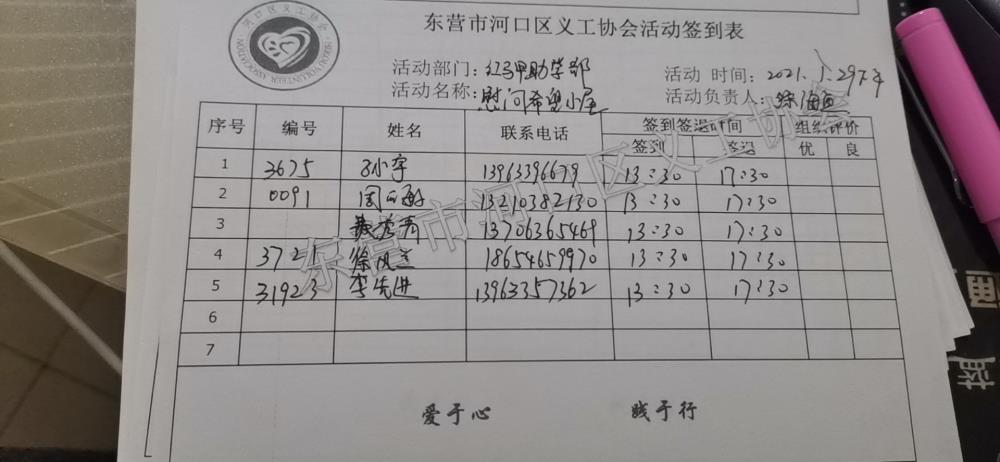 河口区义工协会
HEKOU VOLUNTEER ASSOCIATION
东营市河口区义工协会活动签到表
活动部门: 红马甲助学部 活动 时间: 2021.1.29下午
活动名称: 慰问希望小屋 活动负责人: 徐海
序号 编号 姓名 联系电话 签到签退时间 组织评价
签到 签退 优 良
1 3675 孙宇 13963396679 13:30 17:30
2 0091 周 13210382130 13:30 17:30
3 13706365469 13:30 17:30
4 372 徐 18654659970 13:30 17:30
5 31923 李先进 13963357362 13:30 17:30
6
7
爱于心 践于行
东营市河口区义工协会